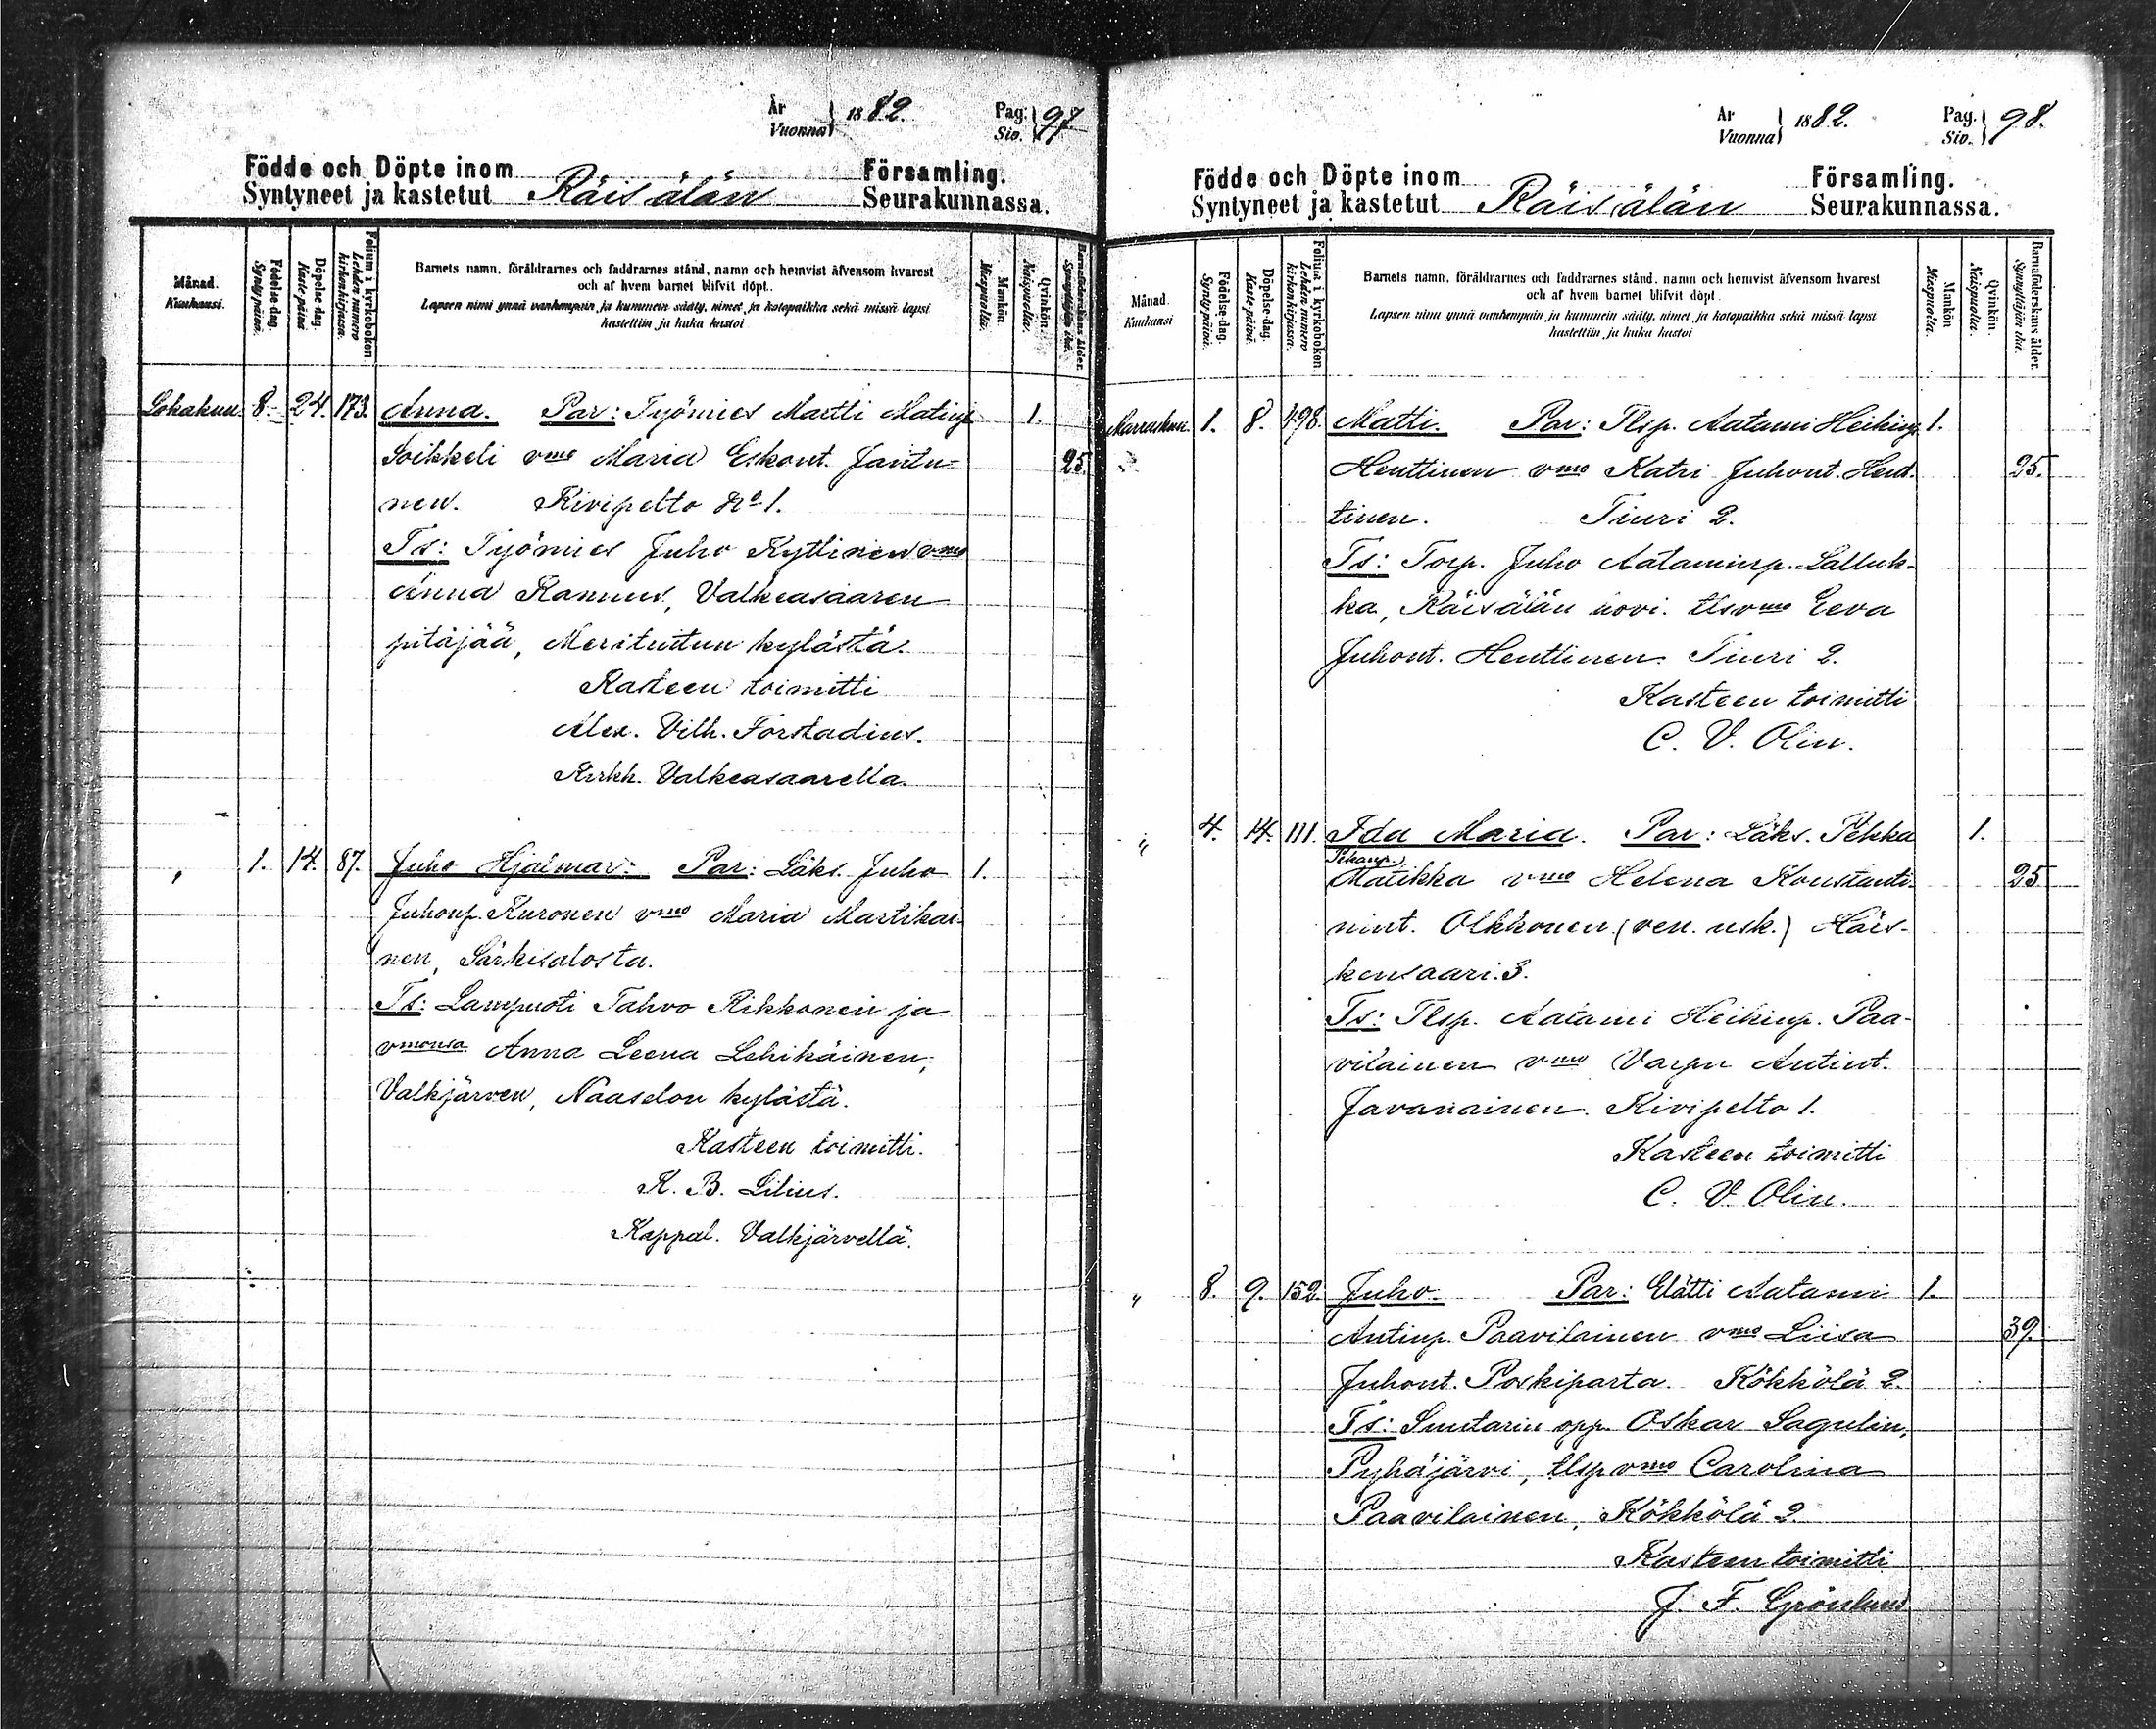 År
Vuonna 1882.
Pag.
Siv. 97
Födde och Döpte inom
Syntyneet ja kastetut Räisälän
Församling.
Seurakunnassa.
Månad.
Kuukausi.
Födelse-dag.
Syntypäivä.
Döpelse-dag.
Kaste-päivä
Folium i kyrkoboken.
Lehden numero
kirkonkirjassa.
Barnets namn, föräldrarnes och faddrarnes stånd, namn och hemvist äfvensom hvarest
och af hvem barnet blifvit döpt.
Lapsen nimi ynnä vanhempain ja kummein sääty, nimet ja kotopaikka sekä missä lapsi
kastettiin ja kuka kastoi
Mankön
Miespuolia.
Qvinkön.
Naispuolia.
Barnaföderskans ålder.
Synnyttäjän ikä.
Lokakuu. 8. 24. 173. Anna. Par: Työmies Martti Matinp. 1.
Soikkeli vmo Maria Eskont. Jantu- 25.
nen. Kivipelto No 1.
Ts: Työmies Juho Kyttinen vmo
Anna Ramus, Valkeasaaren
pitäjää, Merituttun kylästä.
Kasteen toimitti
Alex. Vilh. Forstadius.
Kirkh. Valkeasaarella.
" 1. 14. 87. Juho Hjalmar. Par: Läks. Juho 1.
Juhonp. Kuronen vmo Maria Martikai-
nen, Särkisalosta.
Ts: Lampuoti Tahvo Rikkonen ja
vmonsa Anna Leena Lehikäinen,
Valkjärven, Naaselon kylästä.
Kasteen toimitti.
K. B. Lilius.
Kappal. Valkjärvellä.
År
Vuonna 1882.
Pag.
Siv. 98.
Födde och Döpte inom
Syntyneet ja kastetut Räisälän
Församling.
Seurakunnassa.
Månad.
Kuukausi
Födelse-dag.
Syntypäivä.
Döpelse-dag.
Kaste-päivä.
Folium i kyrkoboken.
Lehden numero
kirkonkirjassa.
Barnets namn, föräldrarnes och faddrarnes stånd, namn och hemvist äfvensom hvarest
och af hvem barnet blifvit döpt.
Lapsen nimi ynnä vanhempain ja kummein sääty, nimet ja kotopaikka sekä missä lapsi
kastettiin ja kuka kastoi
Mankön
Miespuolia.
Qvinkön.
Naispuolia.
Barnaföderskans ålder.
Synnyttäjän ikä.
Marraskuu. 1. 8. 498. Matti. Par: Tlsp. Aatami Heikinp. 1.
Henttinen vmo Katri Juhont. Hent- 25.
tinen. Tiuri 2.
Ts: Torp. Juho Aataminp. Lalluk-
ka, Räisälän hovi. tlsvmo Eeva
Juhont. Henttinen. Tiuri 2.
Kasteen toimitti
C. V. Olin.
" 4. 14. 111. Ida Maria. Par: Läks. Pekka 1.
Pekanp.
Matikka vmo Helena Konstanti- 25
nint. Olkkonen (ven. usk.) Häis-
kensaari. 3.
Ts: Tlsp. Aatami Heikinp. Paa-
vilainen vmo Varpu Antint.
Javanainen. Kivipelto 1.
Kasteen toimitti
C. V. Olin.
" 8. 9. 152. Juho. Par: Elätti Aatami 1.
Antinp. Paavilainen vmo Liisa 39.
Juhont. Poskiparta. Kökkölä 2.
Ts: Suutarin opp. Oskar Sagulin,
Pyhäjärvi, tlsp vmo Carolina
Paavilainen, Kökkölä 2.
Kasteen toimitti
J. F. Grönlund